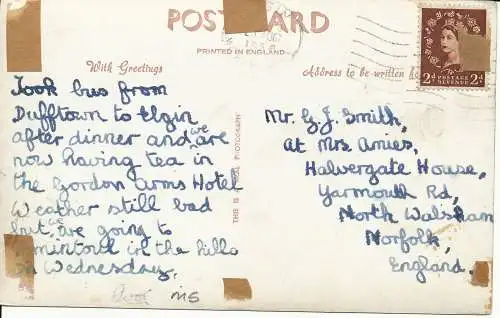 POST CARD
PRINTED IN ENGLAND
With Greetings
Address to be written
POSTAGE REVENUE
2d 2d
Took bus from
Dufftown to Elgin
after dinner and we are
now having tea in
the Gordon Arms Hotel
Weather still bad
but we are going to
Tomintoul in the hills
on Wednesday.
THIS IS A REAL PHOTOGRAPH
Mr. G. J. Smith,
At Mrs. Amies,
Halvergate House,
Yarmouth Rd,
North Walsham
Norfolk.
England.